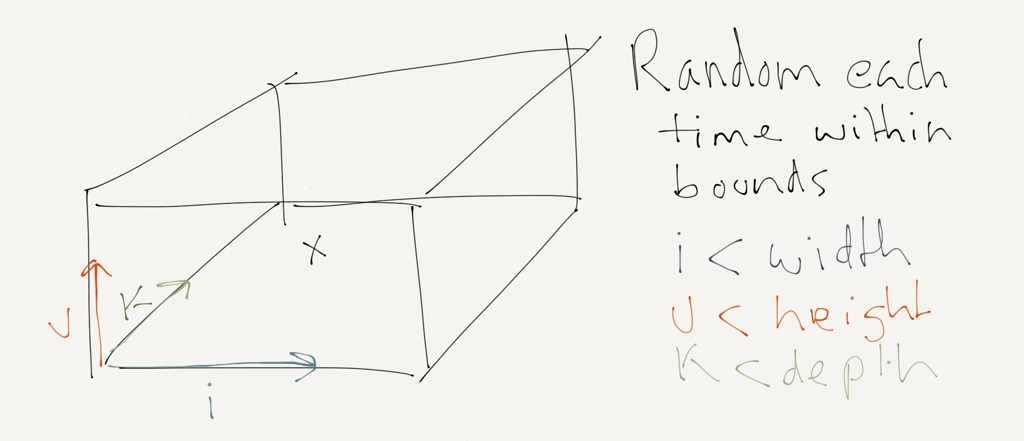 Random each
time within
bounds
i < width
J < height
K < depth
X
J
K
i